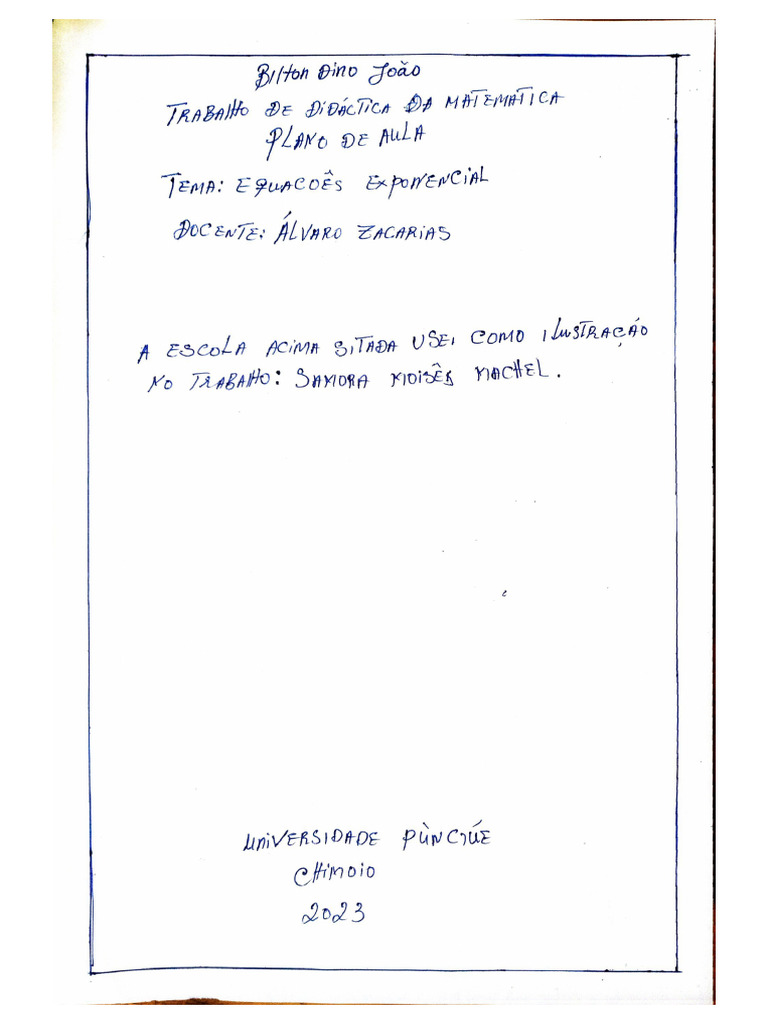 Bilton Dino João
TRABALHO DE DIDÁCTICA DA MATEMATICA
PLANO DE AULA
TEMA: EQUACOÊS EXPONENCIAL
DOCENTE: ÁLVARO ZACARIAS
A ESCOLA ACIMA SITADA USEI COMO ILUSTRAÇÃO
NO TRABALHO: SAMORA MOISÊS MACHEL.
UNIVERSIDADE PÙNGÚE
CHIMOIO
2023